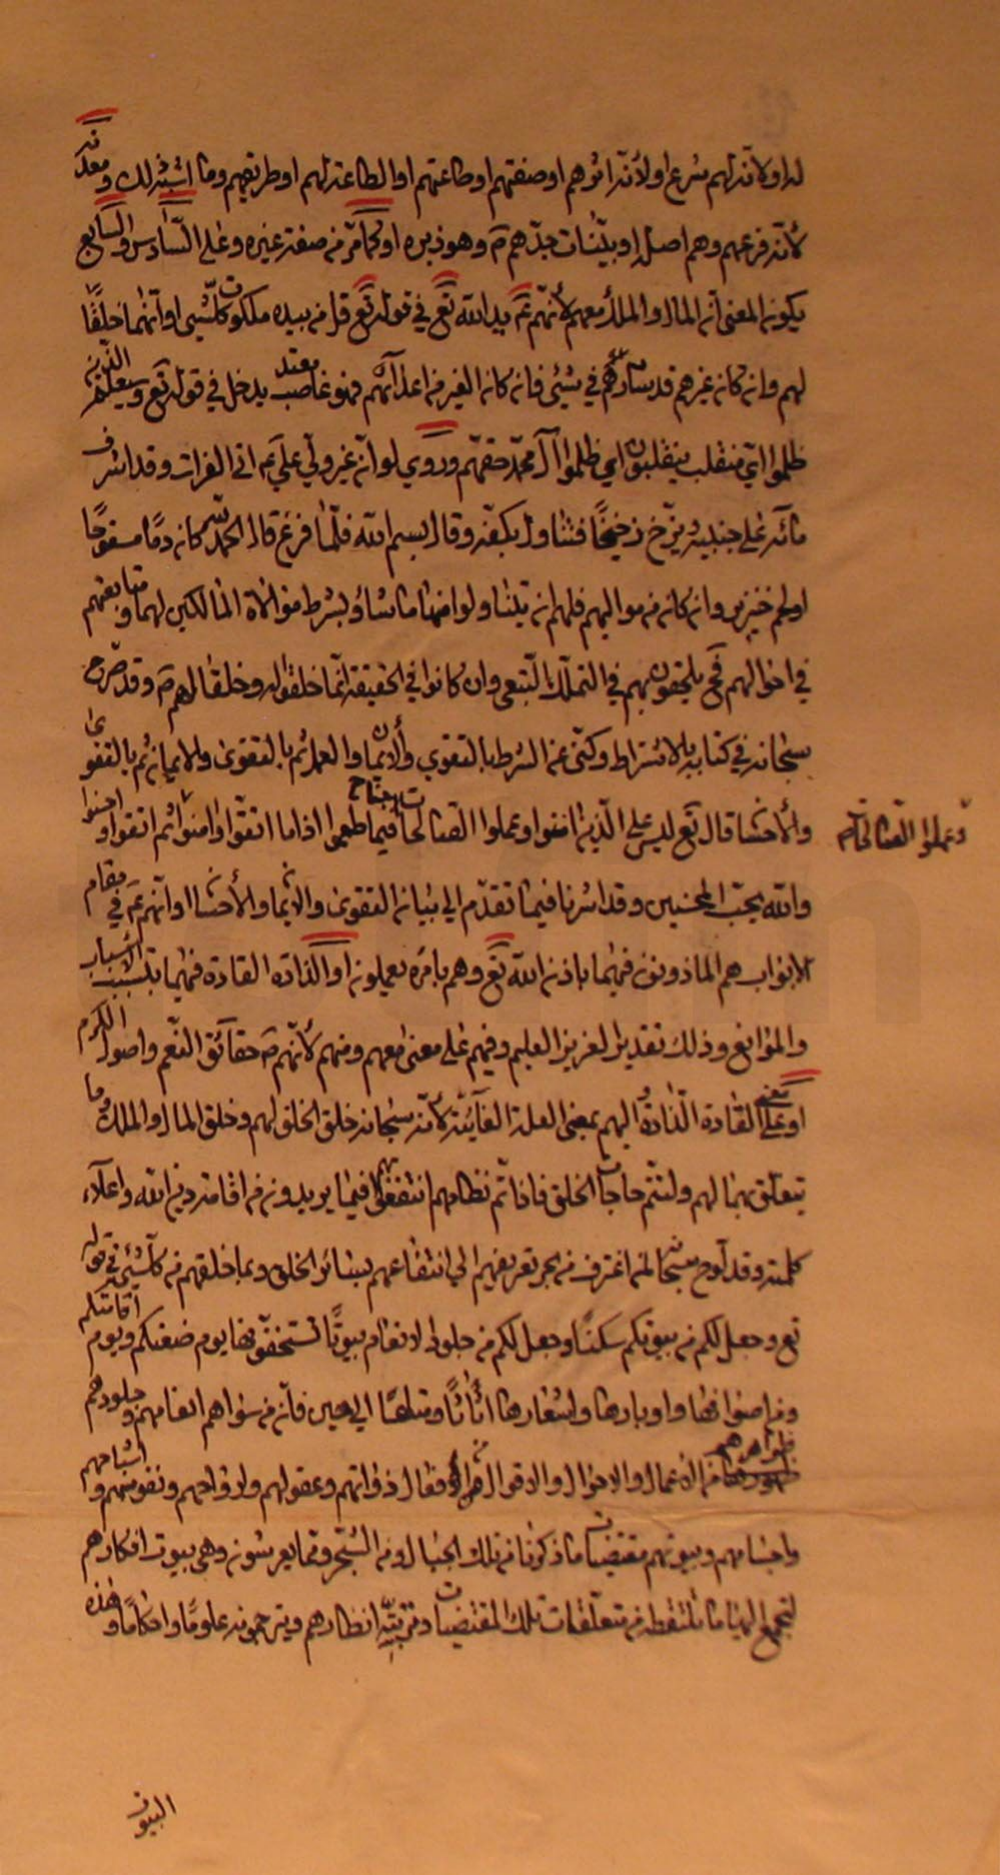 له او لانه لهم شرع او لانه اثرهم او صفتهم او طاعتهم او الطاعة لهم او طريقهم وما اشبه ذلك ومعدنه
لأنه فرعهم وهم اصله او بيّنات جدّهم ص وهو ذيره او كما مر من صفة غيره وعلى السّادس والسّابع
يكون المعنى انه المال والملك معهم لأنّهم ع يد الله تع في قوله تع قل من بيده ملكوت كلّ شيئ او انّهما خلقًا
لهم وانه كانه غيرهم قد يشاركهم في شيئ فانه كانه الغير من اعدائهم فهو غاصب معتد يدخل في قوله تع وسيعلم الّذين
ظلموا اي منقلب ينقلبون اي ظلموا آل محمّد حقهم وروي لو انّ غير وليّ علي ع اتى الفرات وقد اشرف
مائه على جنبيه يزخ زخيخًا فتناول بكفّه وقال بسم الله فلّما فرغ قال الحمد لله كانه دمًا مسفوحًا
او لحم خنزير وانه كانه من مواليهم فلهم انه يتناولوا منها ما شاؤا بشرط موالاة المالكين لها ومتابعتهم
في احوالهم فح يلحقون بهم في التملّك التّبعي وان كانوا في الحقيقة انّما خلقوا له وخلقا لهم ص وقد صرّح
سبحانه في كتابه بالاشتراط وكنّى عن الشرط بالتقوى والايمان والعمل ثم بالتقوى والايمان ثم بالتقوى
والأحسان قال تع ليس على الّذين امنوا وعملوا الصّالحات جناح فيما طعموا اذا ما اتقوا وامنوا ثم اتقوا واحسنوا
وعملوا الصّالحات
والله يحبّ المحسنين وقد اشرنا فيما تقدّم الى بيانه التقوى والايمان والأحسان او انّهم ع في مقام
الابواب هم الماذونون فيهما باذن الله تع وهم بامره يعملون او الذادة القادة فيهما بتسبيب الاسباب
والموانع وذلك تقدير العزيز العليم وفيهم على معنى معهم ومنهم لأنّهم ص حقائق النّعم واصول الكرم
او على معنى القادة الذادة اليهم بمعنى العلة الغائيّة لأنّه سبحانه خلق الخلق لهم وخلق المال والملك وما
يتعلّق بهما لهم ولتتم حاجات الخلق فاذا تم نظامهم انتفعوا بهم فيما يريدون من اقامة دين الله واعلاء
كلمته وقد لوح سبحانه لمن اغترف من بحر تعريفهم الى انتفاعهم بسائر الخلق وبما خلقهم من كلّ شيئ في قوله
تع وجعل لكم من بيوتكم سكنًا وجعل لكم من جلود الانعام بيوتًا تستخفّونها يوم ضعنكم ويوم اقامتكم
ومن اصوافها واوبارها واشعارها اثاثًا ومتاعًا الى حين فانّ من سواهم انعامهم وجلودهم
ظواهرهم من الاعمال والاحوال والاقوال ثمرة افعال ذواتهم وعقولهم وارواحهم ونفوسهم واشباحهم
واجسامهم وبيوتهم مقتضيات ما ذكرنا من تلك الجبال ومن الشجر وما يعرشون وهي بيوت افكارهم
لتجمع اليها ما تلتقطه من متعلّقات تلك المقتضيات ومربيّة انظارهم ويترجمونه علومًا واحكامًا وهذه
البيوت